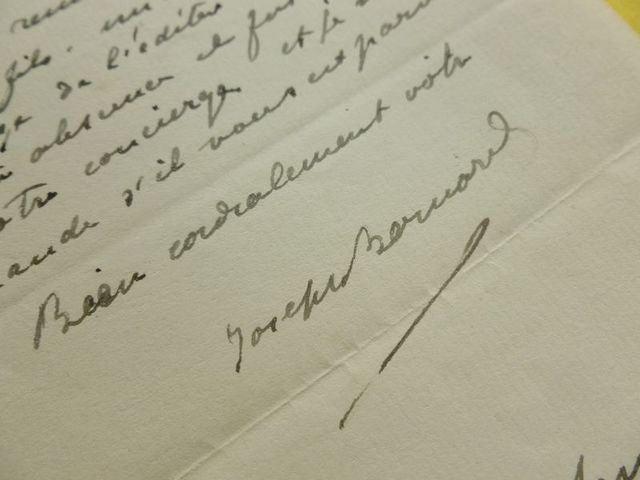 fils, un
de l'éditeur
absence et fus
votre concierge et je
s'il vous est parv
Bien cordialement votre
Joseph Bernard